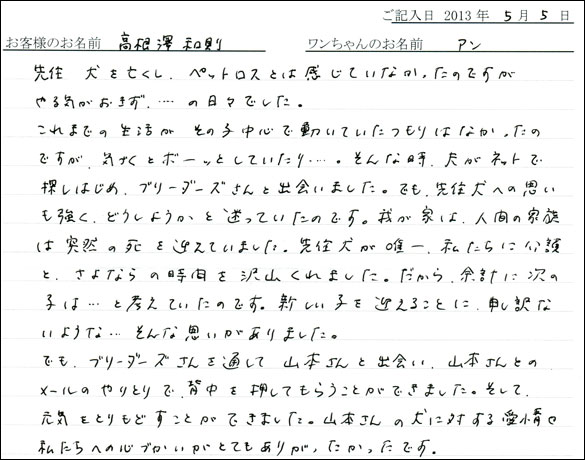 ご記入日 2013 年 5 月 5 日
お客様のお名前 高根澤 和則 ワンちゃんのお名前 アン
先住 犬を亡くし、ペットロスとは感じていなかったのですが
やる気がおきず、…の日々でした。
これまでの生活が その子中心で動いていたつもりはなかったの
ですが、気づくとボーッとしていたり…。そんな時、夫がネットで
探しはじめ、ブリーダーズさんと出会いました。でも、先住犬への思い
も強く、どうしようかと迷っていたのです。我が家は、人間の家族
は突然の死を迎えていました。先住犬が唯一、私たちに介護
と、さよならの時間を沢山くれました。だから、余計に次の
子は…と考えていたのです。新しい子を迎えることに、申し訳な
いような…そんな思いがありました。
でも、ブリーダーズさんを通して 山本さんと出会い、山本さんとの
メールのやりとりで、背中を押してもらうことができました。そして、
元気をとりもどすことができました。山本さんの犬に対する愛情や
私たちへの心づかいがとてもありがたかったです。